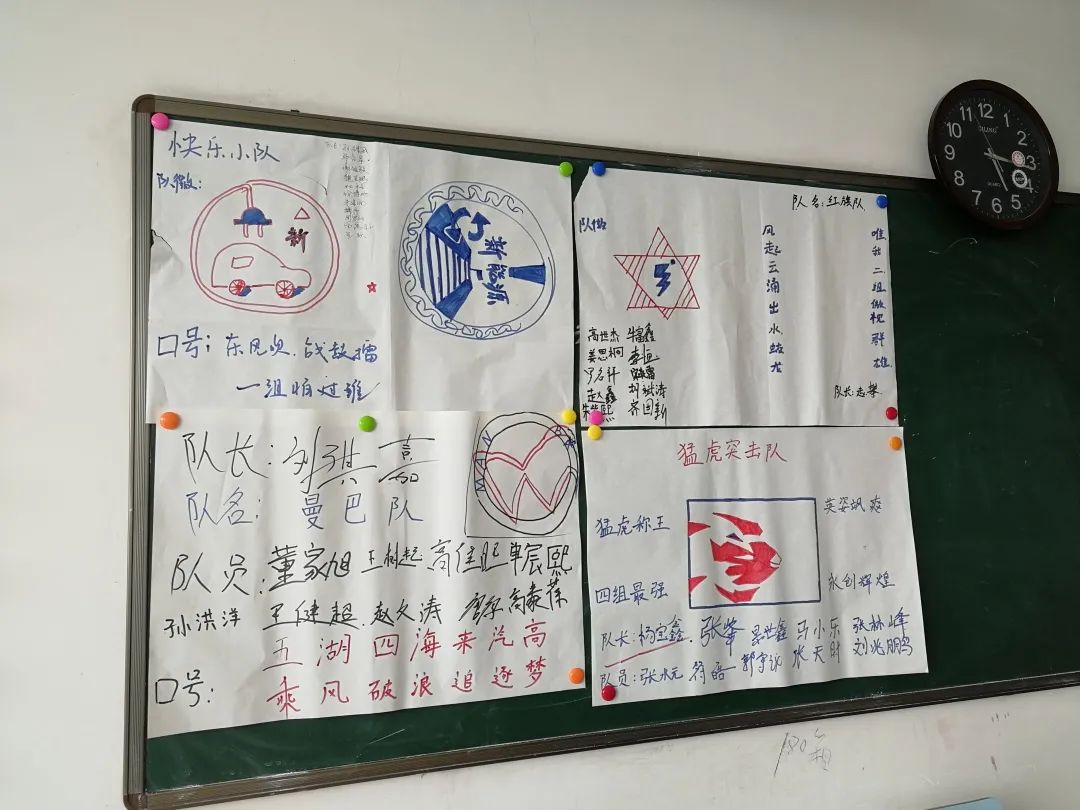 快乐小队
队徽:
新
新能源
口号: 东风吹,战鼓擂
一组怕过谁
队名:红旗队
队徽
风起云涌出水蛟龙
唯我二组傲视群雄
高世杰 牛富鑫
姜思桐 李恒
罗名轩
赵鑫 刘斌涛
朱紫熙 齐国新
队长:志攀
队长:刘祺嘉
队名: 曼巴队
MAN BA
队员:董家旭 王树起 高佳旺 单宸熙
孙洪洋 王健超 赵久涛 廖军 高豪葆
口号: 五湖四海来汽高
乘风破浪追逐梦
猛虎突击队
猛虎称王
英姿飒爽
四组最强
永创辉煌
队长:杨宝鑫 张峰 景世鑫 马小东 张林峰
队员:张水元 符皓 郭宇试 张天时 刘兆鹏
12 1 2 3 4 5 6 7 8 9 10 11
QUARTZ